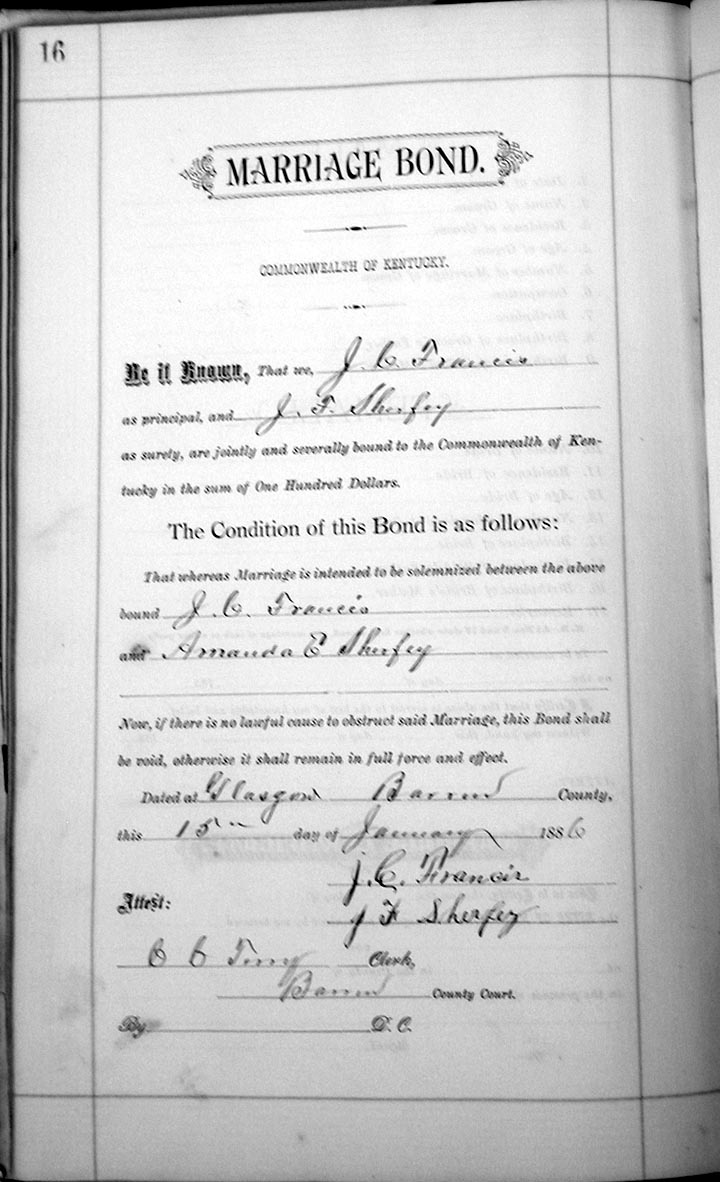 16
MARRIAGE BOND.
COMMONWEALTH OF KENTUCKY.
Be it Known, That we, J. C. Francis
as principal, and J. F. Sherfey
as surety, are jointly and severally bound to the Commonwealth of Ken-
tucky in the sum of One Hundred Dollars.
The Condition of this Bond is as follows:
That whereas Marriage is intended to be solemnized between the above
bound J. C. Francis
and Amanda E Sherfey
Now, if there is no lawful cause to obstruct said Marriage, this Bond shall
be void, otherwise it shall remain in full force and effect.
Dated at Glasgow Barren County,
this 15 day of January 1886
J. C. Francis
Attest:
J F Sherfey
C C Terry Clerk,
Barren County Court.
By D. C.